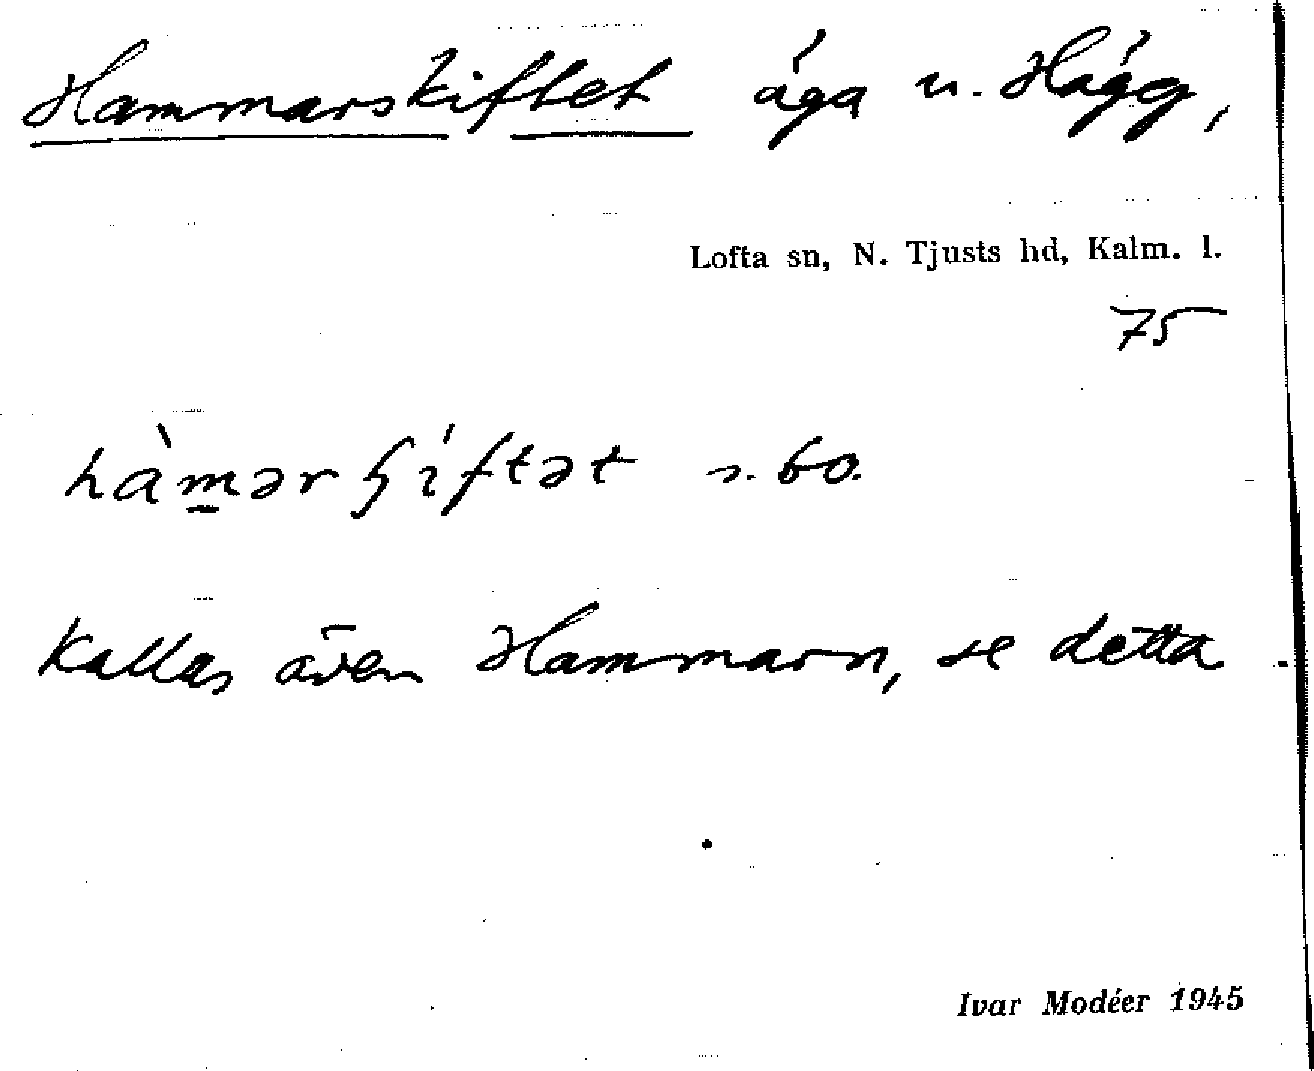 Hammarskiftet äga u. Hägg,
Lofta sn, N. Tjusts hd, Kalm. l.
75
hàmərʃíftət s. bo.
Kallas även Hammarn, se detta.
Ivar Modéer 1945